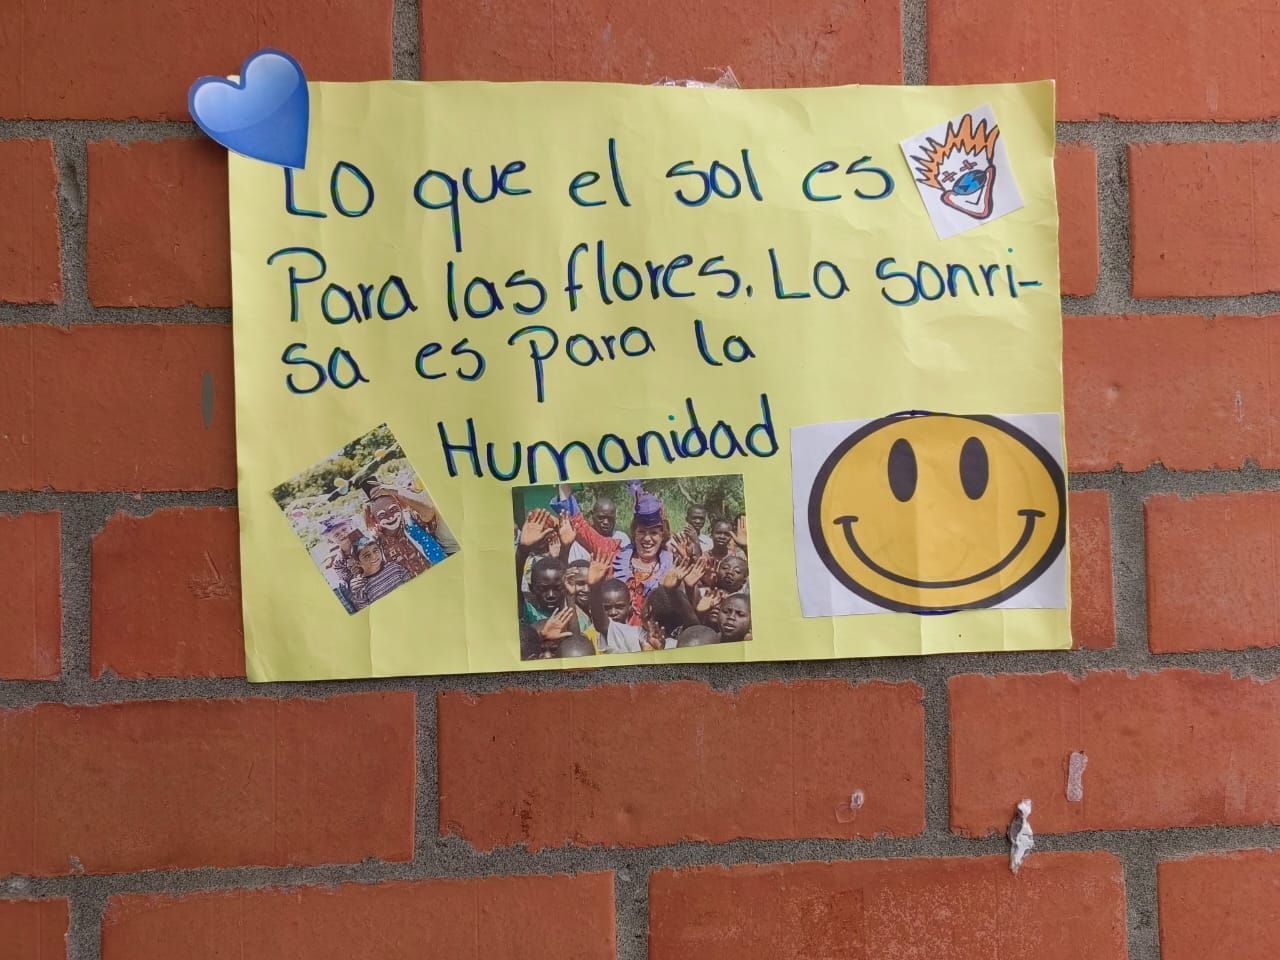 Lo que el sol es
Para las flores. La sonri-
sa es para la
Humanidad